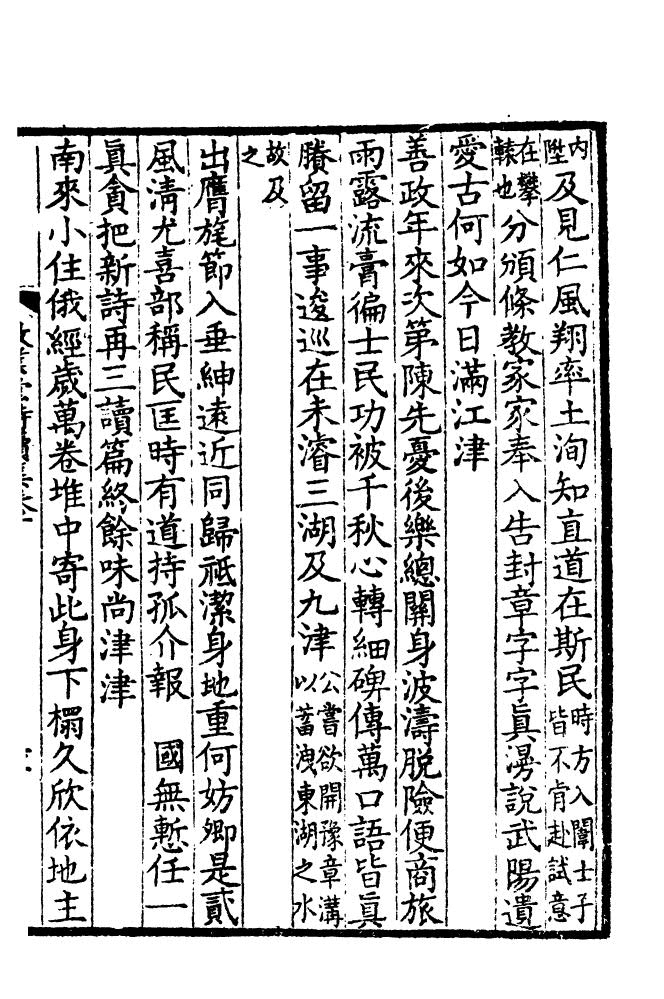 内陞及見仁風翔率土洵知直道在斯民時方入闈士子皆不肯赴試意
在攀轅也分頒條教家家奉入告封章字字眞漫說武陽遺
愛古何如今日滿江津
善政年來次第陳先憂後樂總關身波濤脫險便商旅
雨露流膏徧士民功被千秋心轉細碑傳萬口語皆眞
賸留一事逡巡在未濬三湖及九津公嘗欲開豫章溝以蓄洩東湖之水
故及之
出膺旄節入垂紳遠近同歸祗潔身地重何妨卿是貳
風淸尤喜部稱民匡時有道持孤介報　國無慙任一
眞貪把新詩再三讀篇終餘味尚津津
南來小住俄經歲萬卷堆中寄此身下榻久欣依地主